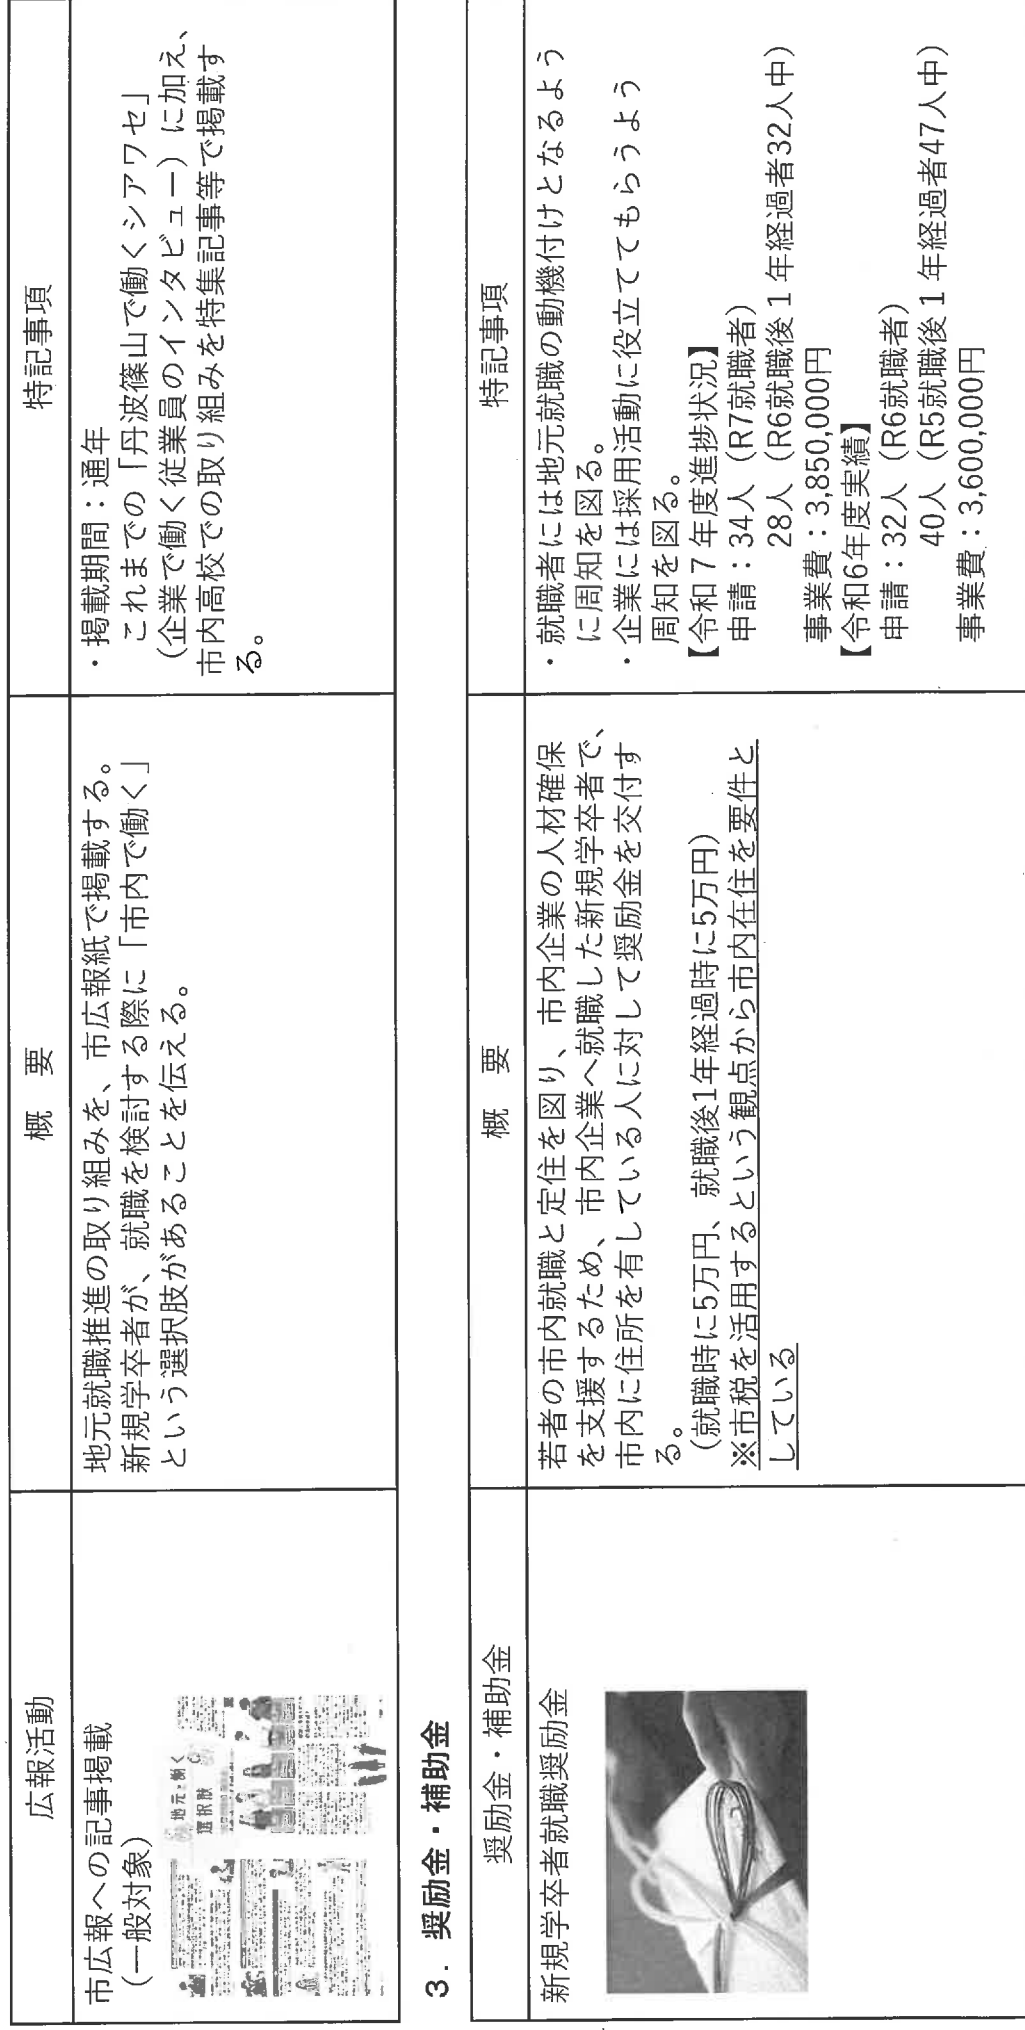 広報活動
概　要
特記事項
市広報への記事掲載
（一般対象）
地元で働く
選択肢
地元就職推進の取り組みを、市広報紙で掲載する。
新規学卒者が、就職を検討する際に「市内で働く」
という選択肢があることを伝える。
・掲載期間：通年
これまでの「丹波篠山で働くシアワセ」
（企業で働く従業員のインタビュー）に加え、
市内高校での取り組みを特集記事等で掲載す
る。
3．奨励金・補助金
奨励金・補助金
概　要
特記事項
新規学卒者就職奨励金
若者の市内就職と定住を図り、市内企業の人材確保
を支援するため、市内企業へ就職した新規学卒者で、
市内に住所を有している人に対して奨励金を交付す
る。
（就職時に5万円、就職後1年経過時に5万円）
※市税を活用するという観点から市内在住を要件と
している
・就職者には地元就職の動機付けとなるよう
に周知を図る。
・企業には採用活動に役立ててもらうよう
周知を図る。
【令和７年度進捗状況】
申請：34人（R7就職者）
28人（R6就職後１年経過者32人中）
事業費：3,850,000円
【令和6年度実績】
申請：32人（R6就職者）
40人（R5就職後１年経過者47人中）
事業費：3,600,000円